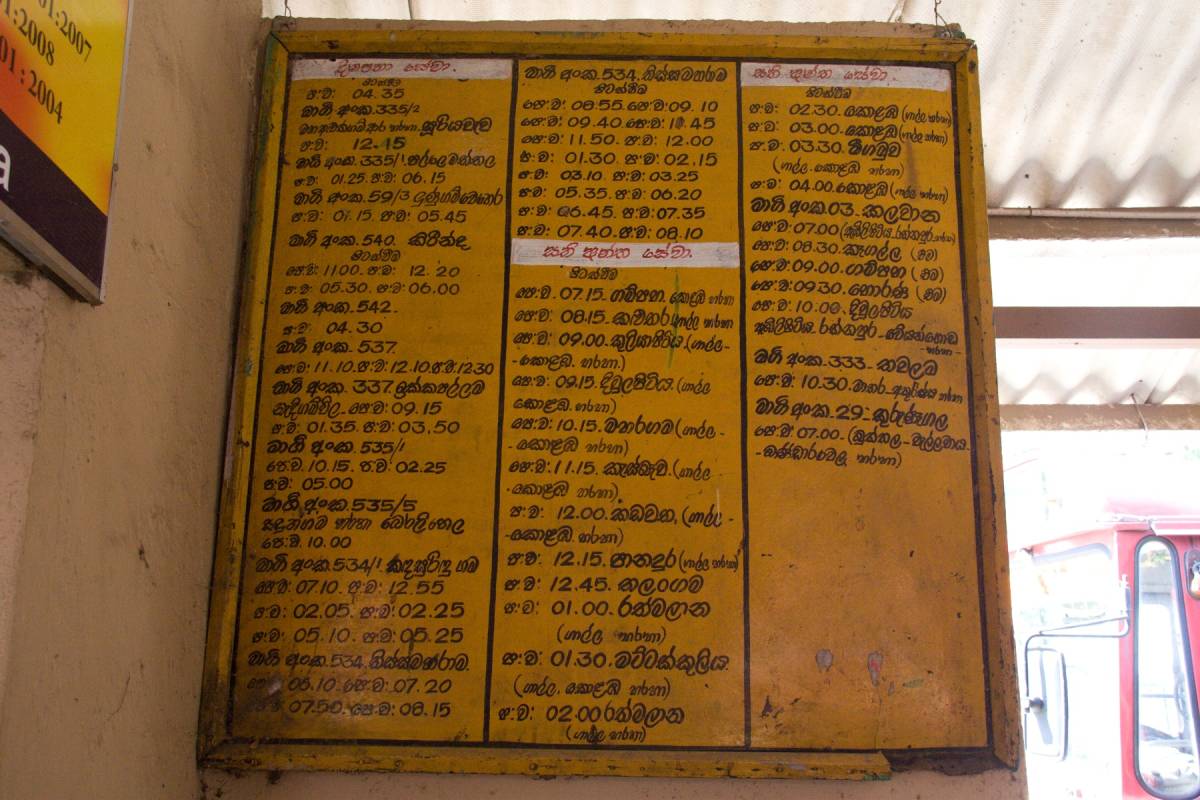 01:2007
01:2008
01:2004
a
දිනපතා සේවා.
පිටත්වීම
ප:ව: 04.35
මාර්ග අංක.335/2
හරහා. සූරියවැව
ප:ව: 12.15
මාර්ග අංක. 335/1.
ප:ව: 01.25. ප:ව: 06.15
මාර්ග අංක.59/3
ප:ව: 01.15. ප:ව: 05.45
මාර්ග අංක. 540. කිරින්ද
පිටත්වීම
පෙ:ව: 11.00. ප:ව: 12.20
ප:ව: 05.30. ප:ව: 06.00
මාර්ග අංක. 542.
ප:ව: 04.30
මාර්ග අංක. 537.
පෙ:ව: 11.10. ප:ව: 12.10. ප:ව: 12.30
මාර්ග අංක. 337.
පෙ:ව: 09.15
ප:ව: 01.35. ප:ව: 03.50
මාර්ග අංක. 535/1
පෙ:ව. 10.15. ප:ව: 02.25
ප:ව: 05.00
මාර්ග අංක. 535/5
හරහා
පෙ:ව. 10.00
මාර්ග අංක.534/1 කඳසුරිඳු ගම
පෙ:ව: 07.10. ප:ව: 12.55
ප:ව: 02.05. ප:ව: 02.25
ප:ව: 05.10. ප:ව: 05.25
මාර්ග අංක. 534. තිස්සමහාරාම.
05.10. පෙ:ව: 07.20
07.50. පෙ:ව: 08.15
මාර්ග අංක. 534. තිස්සමහරාම
පිටත්වීම
පෙ:ව: 08.55. පෙ:ව: 09.10
පෙ:ව: 09.40. පෙ:ව: 10.45
පෙ:ව: 11.50. ප:ව: 12.00
ප:ව: 01.30. ප:ව: 02.15
ප:ව: 03.10. ප:ව: 03.25
ප:ව: 05.35. ප:ව: 06.20
ප:ව: 06.45. ප:ව: 07.35
ප:ව: 07.40. ප:ව: 08.10
සති අන්ත සේවා.
පිටත්වීම
පෙ:ව. 07.15. ගම්පහ. කොළඹ හරහා
පෙ:ව: 08.15. කළුතර (ගාල්ල හරහා
පෙ:ව: 09.00. කුලියාපිටිය. (ගාල්ල-
-කොළඹ. හරහා.)
පෙ:ව: 09.15. දිවුලපිටිය. (ගාල්ල
කොළඹ. හරහා)
පෙ:ව: 10.15. මහරගම (ගාල්ල-
-කොළඹ හරහා)
පෙ:ව: 11.15. කැස්බෑව. (ගාල්ල
-කොළඹ හරහා)
ප:ව: 12.00. කඩවත. (ගාල්ල-
-කොළඹ හරහා)
ප:ව: 12.15. පානදුර (ගාල්ල හරහා)
ප:ව: 12.45. තලංගම
ප:ව: 01.00. රත්මලාන
(ගාල්ල හරහා)
ප:ව: 01.30. මට්ටක්කුලිය.
(ගාල්ල. කොළඹ හරහා)
ප:ව: 02.00 රත්මලාන
(ගාල්ල හරහා)
සති අන්ත සේවා.
පිටත්වීම
ප:ව: 02.30. කොළඹ (ගාල්ල හරහා)
ප:ව: 03.00. කොළඹ (ගාල්ල හරහා)
ප:ව: 03.30. මීගමුව
(ගාල්ල. කොළඹ හරහා)
ප:ව: 04.00. කොළඹ (ගාල්ල හරහා)
මාර්ග අංක.03. කලවාන
පෙ:ව: 07.00 (ඇඹිලිපිටිය. රත්නපුර හරහා)
පෙ:ව: 08.30. කෑගල්ල (එම)
පෙ:ව: 09.00. ගම්පහ (එම)
පෙ:ව: 09.30. හොරණ (එම)
ප:ව: 10.00. දිවුලපිටිය
ඇඹිලිපිටිය. රත්නපුර- වේයන්ගොඩ
හරහා-
මාර්ග අංක. 333.
පෙ:ව: 10.30. මාතර- අකුරැස්ස හරහා
මාර්ග අංක- 29- කුරුණෑගල
පෙ:ව: 07.00. (බුත්තල- වැල්ලවාය-
-බණ්ඩාරවෙල හරහා)